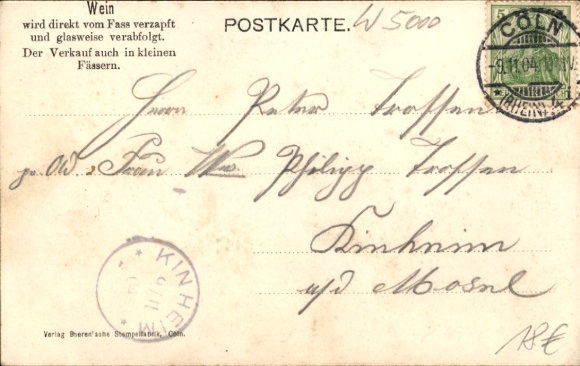 Wein
wird direkt vom Fass verzapft
und glasweise verabfolgt.
Der Verkauf auch in kleinen
Fässern.
POSTKARTE.
W 5000
5
CÖLN
-9.11.04.10-11V.
* (RHEIN)
Herrn Peter Troffen
Frau Wwe Philipp Troffen
Kinheim
a/d Mosel
KINHEIM
Verlag Boeren'sche Stempelfabrik, Cöln.
18€